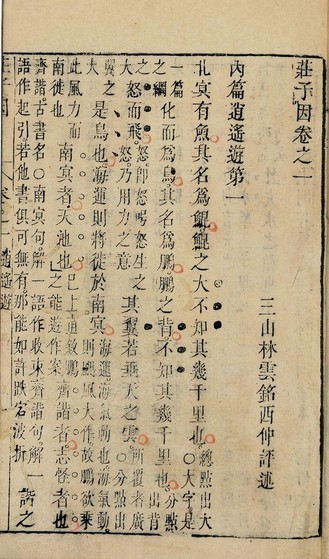 莊子因卷之一
三山林雲銘西仲評述
內篇逍遙遊第一
北冥有魚其名爲鯤鯤之大不知其幾千里也總點出大○大字是
一篇之綱化而爲鳥其名爲鵬鵬之背不知其幾千里也分點出背
之大怒而飛怒即怒號怒生之怒乃用力之意其翼若垂天之雲○分點出所覆者廣
翼之大是鳥也海運則將徙於南冥海運海氣動則颶風大作故鵬欲乘
此風力而南徙也南冥者天池也巳上直敘鵬之能遊作案齊諧者志怪者也
齊諧古書名○南冥句解一語作收東齊諧句解一語作起引若他書俱可無有那能如許跌宕波折諧之
莊子因 卷之一 逍遙遊